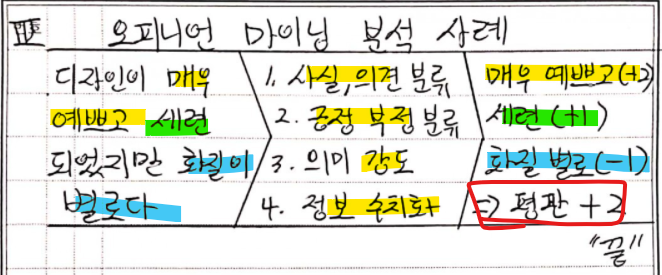 표 오피니언 마이닝 분석 사례
디자인이 매우
예쁘고 세련
되었지만 화질이
별로다
1. 사실, 의견 분류
2. 긍정 부정 분류
3. 의미 강도
4. 정보 수치화
매우 예쁘고(+2)
세련 (+1)
화질 별로(-1)
=> 평판 +2
"끝"